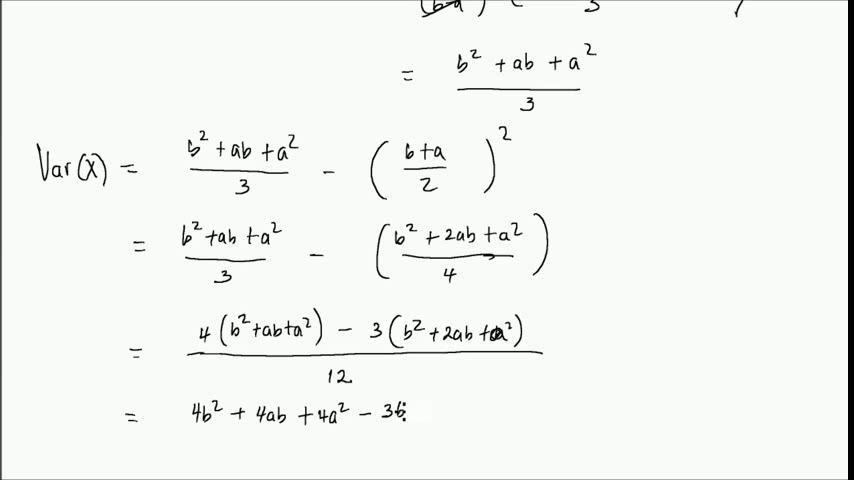 = (b² + ab + a²)/3
Var(X) = (b² + ab + a²)/3 − ((b+a)/2)²
= (b² + ab + a²)/3 − ((b² + 2ab + a²)/4)
= (4(b² + ab + a²) − 3(b² + 2ab + a²))/12
= 4b² + 4ab + 4a² − 3b